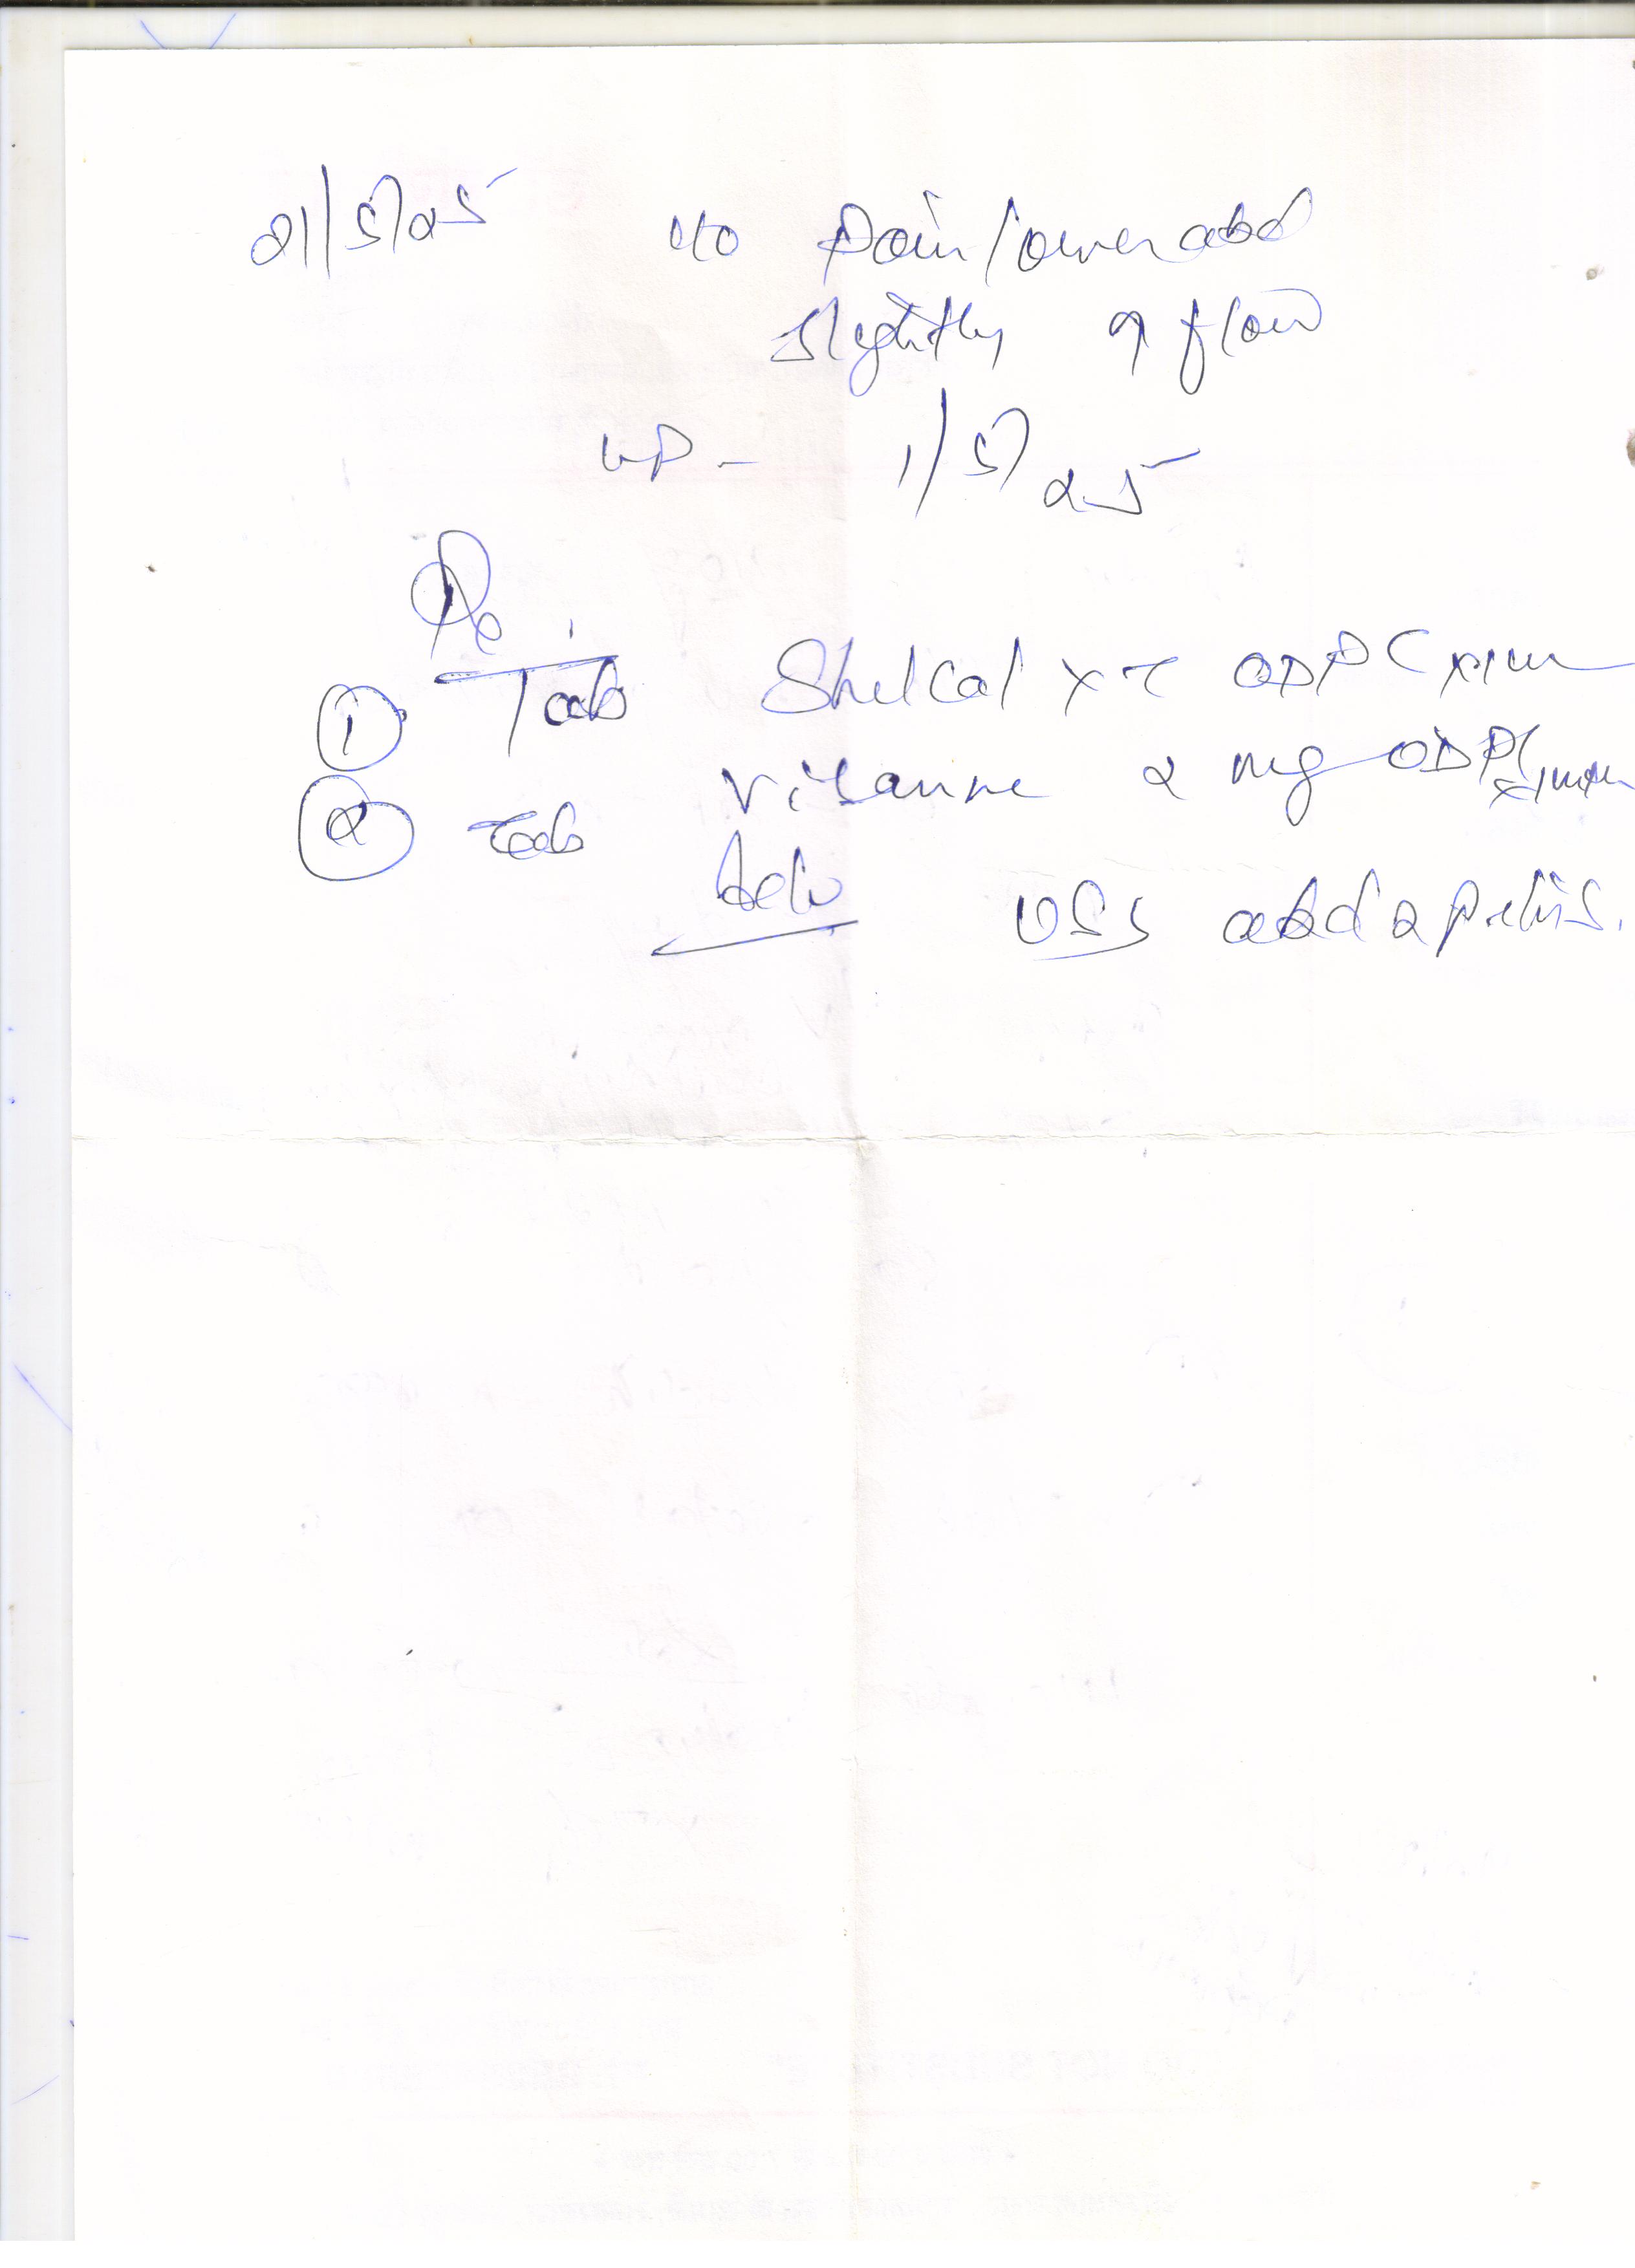 21/5/25 H/o Pain lower abd
slightly ↑ flow
LP - 1/5/25
Rx
① Tab Shelcal XT OD PC x 1m
② Tab Visanne 2 mg OD PC x 1m
Adv USG abd & pelvis.